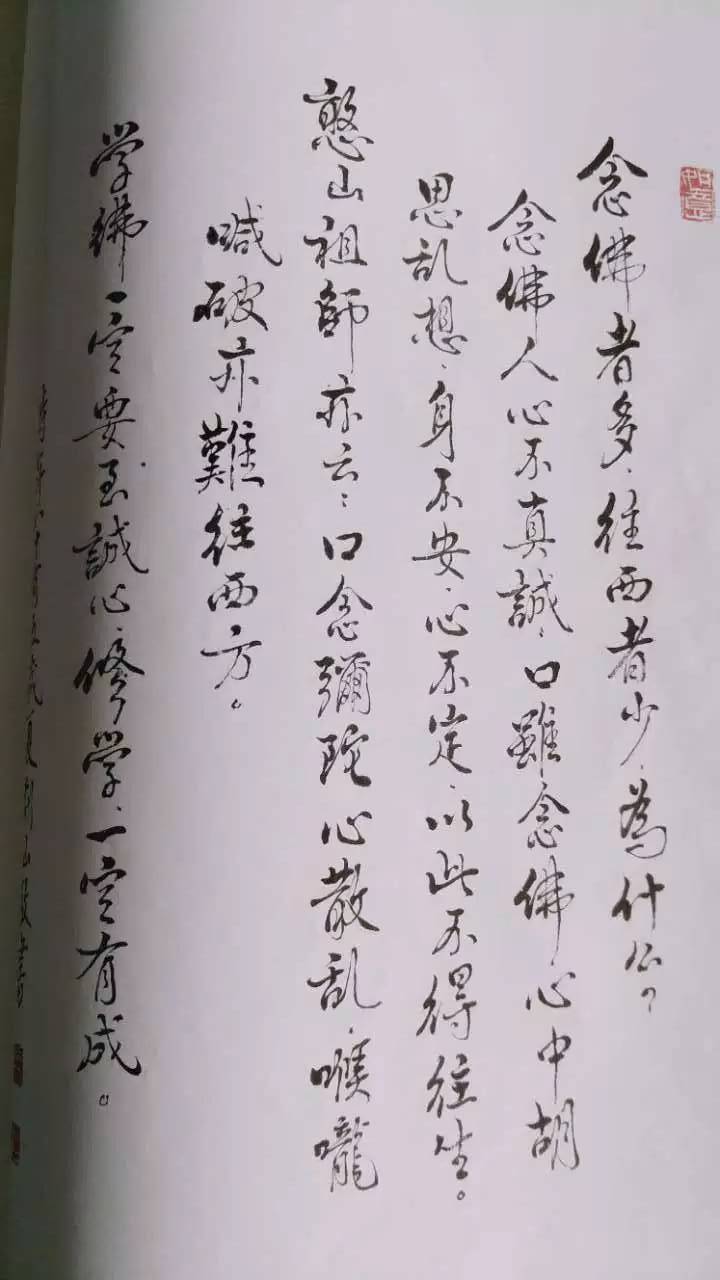 念佛者多、往西者少、為什么？
念佛人心不真誠、口雖念佛心中胡
思乱想、身不安、心不定、以此不得往生。
憨山祖師亦云：口念彌陀心散乱、喉嚨
喊破亦難往西方。
学佛一定要至誠心修学、一定有成。